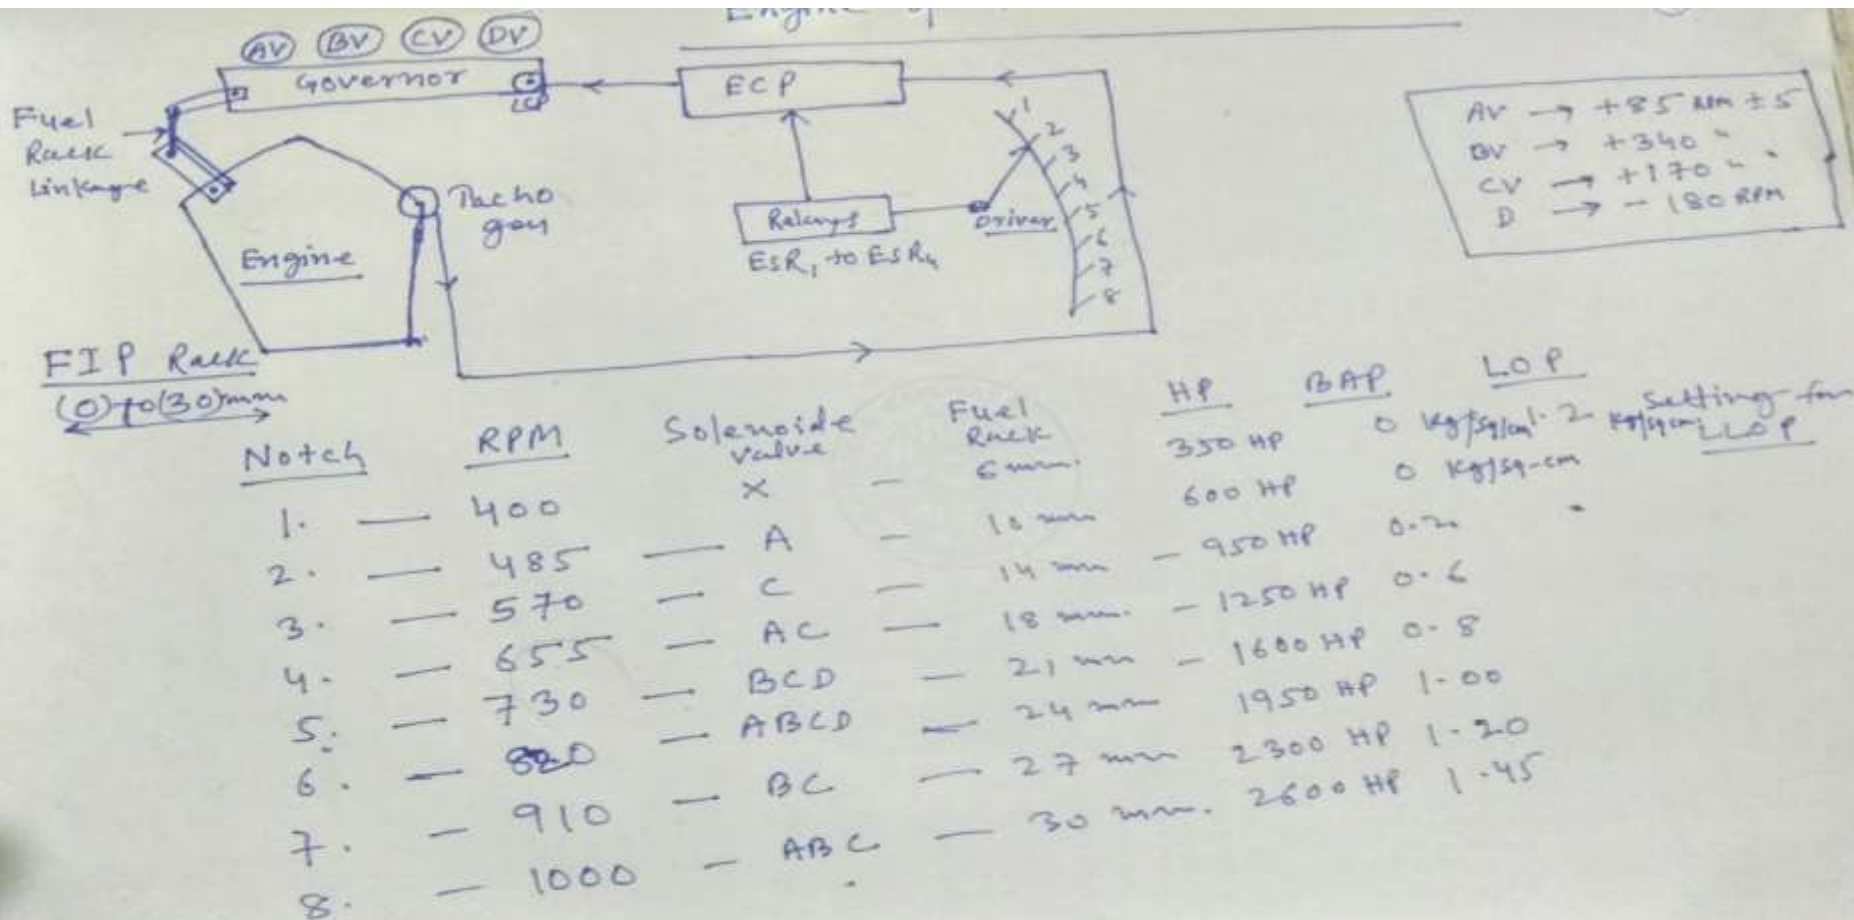 Engine
AV BV CV DV
Governor
ECP
LCP
Fuel
Rack
Linkage
Tacho
gen
Engine
Relays
ESR1 to ESR4
Driver
1
2
3
4
5
6
7
8
AV → +85 RPM ±5
BV → +340 " "
CV → +170 " "
D → - 180 RPM
FIP Rack
(0) to (30) mm
Notch RPM Solenoide Valve Fuel Rack HP BAP LOP Setting for LLOP
1. — 400 X — 6 mm. 350 HP 0 Kg/sq/cm 1.2 Kg/sqcm
2. — 485 — A — 10 mm 600 HP 0 Kg/sq-cm
3. — 570 — C — 14 mm — 950 HP 0.20
4. — 655 — AC — 18 mm. — 1250 HP 0.6
5. — 730 — BCD — 21 mm — 1600 HP 0-8
6. — 820 — ABCD — 24 mm 1950 HP 1-00
7. — 910 — BC — 27 mm 2300 HP 1-20
8. — 1000 — ABC — 30 mm. 2600 HP 1.45